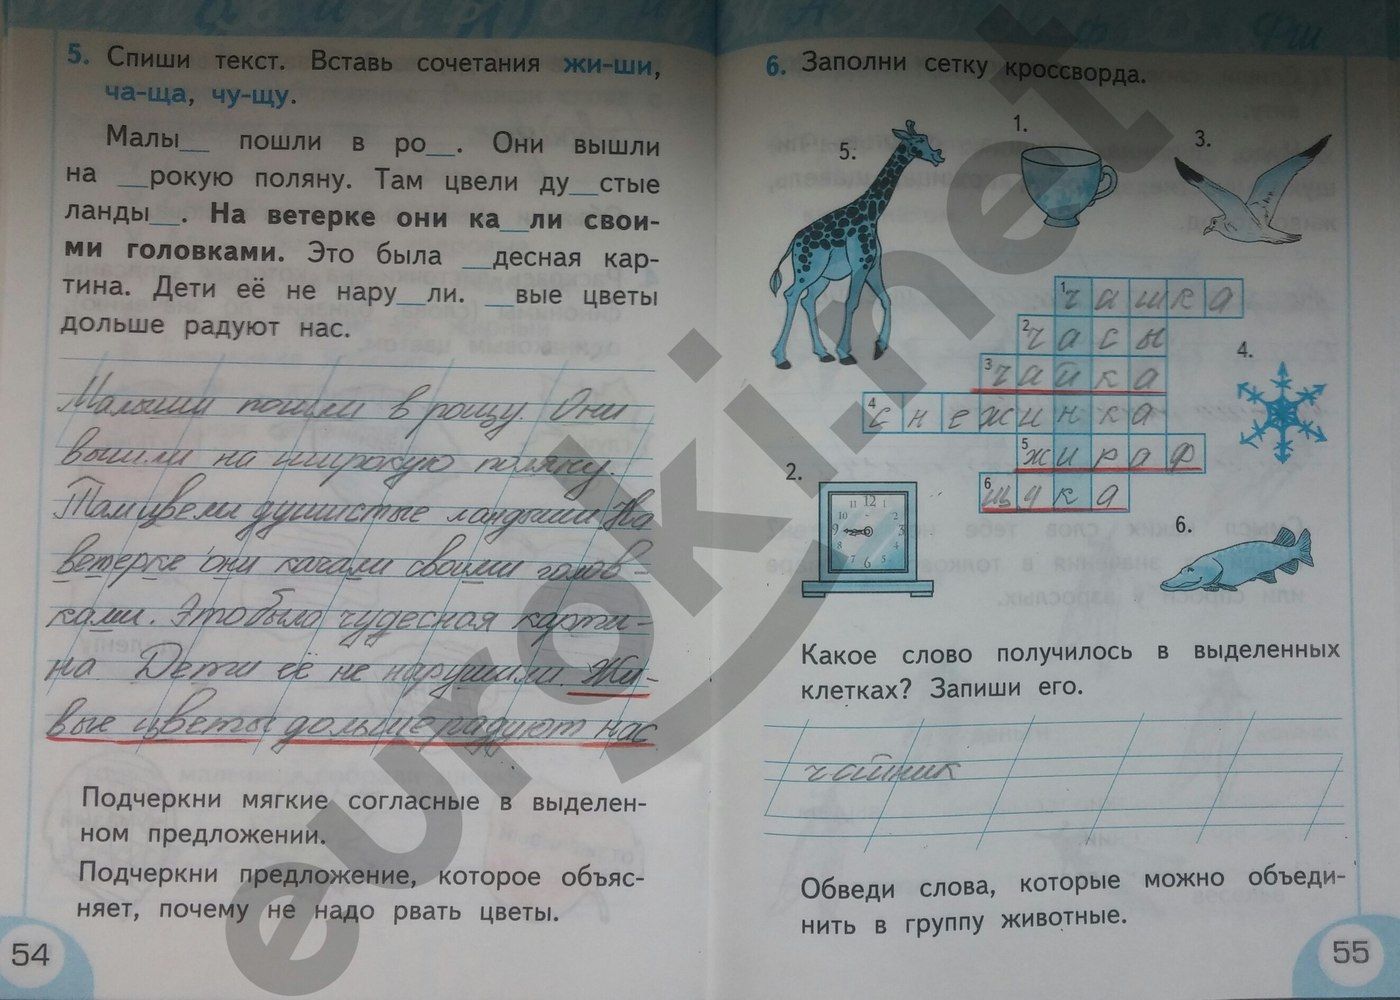 5. Спиши текст. Вставь сочетания жи-ши,
ча-ща, чу-щу.
Малы__ пошли в ро__. Они вышли
на __рокую поляну. Там цвели ду__стые
ланды__. На ветерке они ка__ли свои-
ми головками. Это была __десная кар-
тина. Дети её не нару__ли. __вые цветы
дольше радуют нас.
Малыши пошли в рощу. Они
вышли на широкую поляну.
Там цвели душистые ландыши На
ветерке они качали своими голов-
ками. Это была чудесная карти-
на Дети её не нарушили. Жи-
вые цветы дольше радуют нас
Подчеркни мягкие согласные в выделен-
ном предложении.
Подчеркни предложение, которое объяс-
няет, почему не надо рвать цветы.
54
6. Заполни сетку кроссворда.
1.
3.
5.
1 чашка
2 часы
3 чайка
4.
4 снежинка
5 жираф
6 щука
2.
12
9 3
6
6.
Какое слово получилось в выделенных
клетках? Запиши его.
чайник
Обведи слова, которые можно объеди-
нить в группу животные.
55
euroki.net